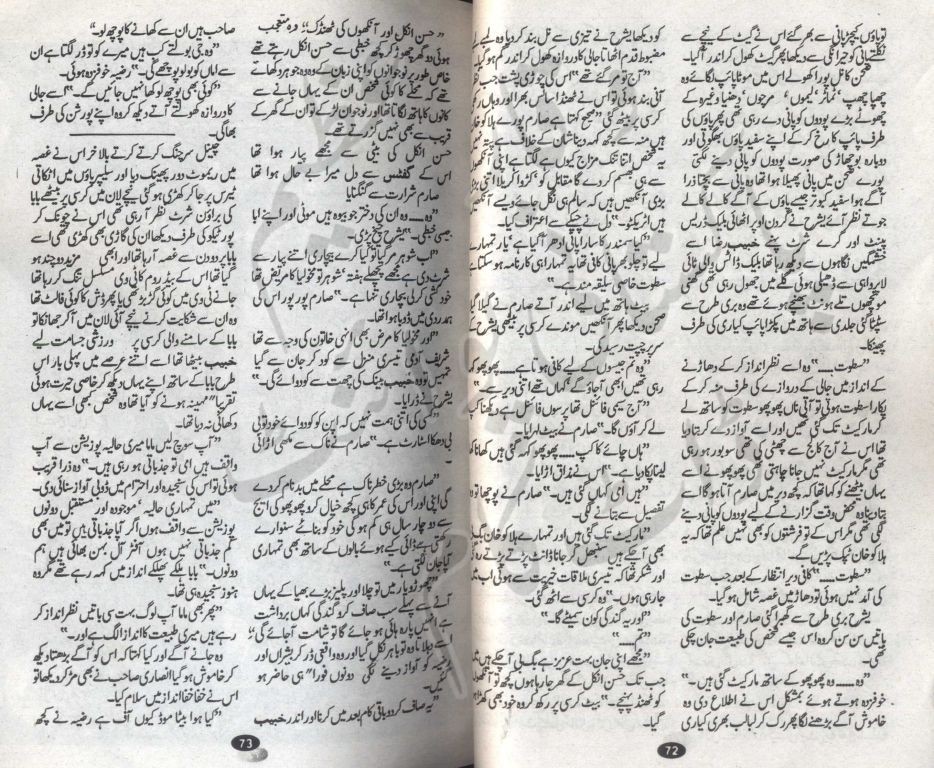 تو پاؤں کیچڑ پانی سے بھر گئے اس نے گیٹ کے نیچے سے
نکلتے پانی کو حیرانگی سے دیکھا پھر گیٹ کھول کر اندر آ گیا۔
صحن کا نل پورا کھولے اس میں موٹا پائپ لگائے وہ
چھپا چھپ' ٹماٹر' لیموں' مرچوں' دھنیا وغیرہ کے
چھوٹے بڑے پودوں کو پانی دے رہی تھی پھر پاؤں کی
طرف پائپ کا رخ کر کے اپنے سفید پاؤں بھگوتی اور
دوبارہ بوچھاڑ کی صورت پودوں کو پانی دینے لگتی
پورے صحن میں پانی پھیلا ہوا تھا وہ پانی سے بچتا ذرا
آگے ہوا سفید کبوتر جیسے پاؤں کے آگے کالے کالے
جوتے نظر آئے یشرح نے گردن اوپر اٹھائی بلیک ڈریس
پینٹ اور گرے شرٹ پہنے خبیب رضا اسے
خشمگیں نگاہوں سے دیکھ رہا تھا بلیک ڈاٹس والی ٹائی
لاپرواہی سے ڈھیلی ہوئی گلے میں جھول رہی تھی گھنی
مونچھوں تلے ہونٹ بھینچے ہوئے تھے وہ بری طرح سے
سٹپٹا گئی جلدی سے ہاتھ میں پکڑا پائپ کیاری کی طرف
پھینکا۔
"سطوت......" وہ اسے نظر انداز کر کے دھاڑنے
کے انداز میں جالی کے دروازے کی طرف منہ کر کے
پکارا سطوت ہوتی تو آتی ناں پھوپھو سطوت کو ساتھ لے
کر مارکیٹ تک گئی تھیں اور اسے آواز دے کر بتا دیا
تھا اس نے آج کالج سے چھٹی کی تھی سو بور ہو رہی
تھی مگر مارکیٹ نہیں جانا چاہتی تھی پھوپھو نے اسے
یہاں بیٹھنے کو کہا تھا کہ کچھ دیر میں صارم آتا ہوگا اسے
بتانا وہ محض وقت گزارنے کے لیے پودوں کو پانی دینے
لگی تھی مگر اس کے تو فرشتوں کو بھی نہیں علم تھا کہ یہ
ہلاکو خان ٹپک پڑیں گے۔
"سطوت......" کافی دیر انتظار کے بعد جب سطوت
کی آمد نہیں ہوئی تو دھاڑ میں غصہ شامل ہو گیا۔
یشرح بری طرح سے گھبرا گئی صارم اور سطوت کی
باتیں سن سن کر وہ اس جیسے شخص کی طبیعت جان چکی
تھی۔
"وہ...... وہ پھوپھو کے ساتھ مارکیٹ گئی ہیں۔"
خوفزدہ ہوتے ہوئے بمشکل اس نے اطلاع دی وہ
خاموش آگے بڑھنے لگا پھر رک کر لبالب بھری کیاری
کو دیکھا یشرح نے تیزی سے نل بند کر دیا وہ لمبے لمبے
مضبوط قدم اٹھاتا جالی کا دروازہ کھول کر اندر گم ہو گیا۔
"آج تو مر گئے تھے" اس کی چوڑی پشت جب نظر
آنی بند ہوئی تو اس نے ٹھنڈا سانس بھرا اور وہاں رکھی
کرسی پر بیٹھ گئی "صحیح کہتا ہے صارم پورے ہلاکو خان
ہیں منہ سے کچھ کہہ دینا شان کے خلاف ہے پتہ نہیں
یہ شخص اتنا تنک مزاج کیوں ہے لگتا ہے اپنی آنکھوں
سے ہی بھسم کر دے گا مقابل کو' کڑوا کریلا اتنی بڑی
بڑی آنکھیں ہیں کہ سالم ہی نگل جائے ویسے آنکھیں
ہیں اٹریکٹو۔" دل نے چپکے سے اعتراف کیا۔
"کیا سمندر کا سارا پانی ادھر آ گیا ہے' یار تمہارے
لیے تو چلو بھر پانی کافی تھا یہ تمہارا ہی کارنامہ ہو سکتا ہے
سطوت خاصی سلیقہ مند ہے۔"
بیٹ ہاتھ میں لیے اندر آتے صارم نے گیلا گیلا
صحن دیکھا پھر آنکھیں موندے کرسی پر بیٹھی یشرح کے
سر پر چپت رسید کی۔
"وہ تم جیسوں کے لیے کافی ہوتا ہے...... پھوپھو کہہ
رہی تھیں ابھی آ جاؤ گے' کہاں تھے اتنی دیر سے۔"
"آج سیمی فائنل تھا پرسوں فائنل ہے دیکھنا کپ
لے کر آؤں گا۔" صارم نے بیٹ لہرایا۔
"ہاں چائے کا کپ...... پھوپھو کہہ گئی ہیں کھانا کھا
لینا پکا دیا ہے۔" اس نے مذاق اڑایا۔
"ہیں امی کہاں گئی ہیں۔" صارم نے پوچھا تو وہ
تفصیل سے بتانے لگی۔
"مارکیٹ تک گئی ہیں اور تمہارے ہلاکو خان بگ بی
بھی آ چکے ہیں سنبھل کر جانا ڈانٹ پڑتے پڑتے رہ گئی
اور شکر تھا کہ تیسری ملاقات خیریت سے ہوئی اب میں
جا رہی ہوں۔" وہ کرسی سے اٹھ گئی۔
"اور یہ گندگی کون سمیٹے گا۔"
"تم......"
"مجھے اپنی جان بہت عزیز ہے بگ بی آ چکے ہیں میں
جب تک حسن انکل کے گھر جا رہا ہوں کچھ تو آنکھوں
کو ٹھنڈ پہنچے۔" بیٹ کرسی پر رکھ کر وہ خود بھی کھڑا ہو
گیا۔
72
"حسن انکل اور آنکھوں کی ٹھنڈک؟" وہ متعجب
ہوئی دو گھر چھوڑ کر کچھ خبطی سے حسن انکل رہتے تھے
خاص طور پر نوجوانوں کو اپنی زبان کے وہ وہ جوہر دکھاتے
تھے کہ محلے کا کوئی شخص ان کے یہاں جانے سے
کانوں کا ہاتھ لگاتا تھا اور نوجوان لڑکے تو ان کے گھر کے
قریب سے بھی نہیں گزرتے تھے۔
حسن انکل کی بیٹی سے مجھے پیار ہوا تھا
اس کے گفٹس سے دل میرا بے حال ہوا تھا
صارم شرارت سے گنگنایا
"وہ...... وہ ان کی دختر جو بیوہ ہیں موٹی اور اپنے ابا
جیسی خبطی۔" یشرح چیخ پڑی۔
"اب شوہر مر گیا تو کیا کرے بیچاری اتنے پیار سے
شرٹ دی ہے مجھے پچھلے ہفتے' شوہر تو مخولیا کا مریض تھا
خود کشی کر لی بیچاری تنہا ہے۔" صارم پور پور اس کی
ہمدردی میں ڈوبا ہوا تھا۔
"اور مخولیا کا مرض بھی انہی خاتون کی وجہ سے تھا
شریف آدمی تیسری منزل سے کود کر جان سے گیا
تمہیں تو وہ حبیب بینک کی چھت سے کودوائے گی۔"
یشرح نے ڈرایا۔
"کسی کی اتنی ہمت نہیں کہ اپن کو کودوائے خود توئی
بی دھکا اسٹارٹ ہے۔" صارم نے ناک سے مکھی اڑائی
۔
"صارم وہ بڑی خطرناک ہے محلے میں بدنام کر دے
گی اپنی اور اس کی عمر کا ہی کچھ خیال کرو پھوپھو کی ایج
سے دو چار سال ہی کم ہوگی خود کو بنائے سنوارے
رکھتی ہے ڈائی کیے ہوئے بالوں کے ساتھ بھی تمہاری
آپا جان لگتی ہے۔"
"چھوڑو یار میں تو چلا اور پلیز بڑے بھیا کے یہاں
آنے سے پہلے سب صاف کر دو گندگی کہاں برداشت
ہے انہیں پارہ ہائی ہو جائے گا تو شامت آ جائے گی'"
اسے دہلا تا وہ تو باہر نکل گیا اور وہ واقعی ڈر کر بشراں اور
رضیہ کو آواز دینے لگی دونوں فوراً" ہی حاضر ہو
گئیں۔
"یہ صاف کر دو باقی کام بعد میں کرنا اور اندر خبیب
صاحب ہیں ان سے کھانے کا پوچھ لو۔"
"وہ جی بولتے کب ہیں میرے کو تو ڈر لگتا ہے ان
سے اماں کو بولو پوچھے گی۔" رضیہ خوفزدہ ہوئی۔
"کوئی بھی پوچھ لو کھا نہیں جائیں گے۔" اسے جالی
کا دروازہ کھولتے آتے دیکھ کر وہ اپنے پورشن کی طرف
بھاگی۔
چینل سرچنگ کرتے کرتے بالآخر اس نے غصہ
میں ریموٹ دور پھینک دیا اور سلیپر پاؤں میں اڑ کاتی
ٹیرس پر جا کر کھڑی ہو گئی نیچے لان میں کرسی پر بیٹھے پاپا
کی براؤن شرٹ نظر آ رہی تھی اس نے چونک کر
پورٹیکو کی طرف دیکھا ان کی گاڑی بھی کھڑی تھی اسے
پاپا پر دو دن سے غصہ آ رہا تھا اور ابھی مزید دو چند ہو
گیا تھا اس کے بیڈ روم کا ٹی وی مسلسل تنگ کر رہا تھا
جانے ٹی وی میں کوئی گڑبڑ تھی یا پھر ڈش کا کوئی فالٹ تھا
وہ ان سے شکایت کرنے نیچے آئی لان میں آ کر جھانکا تو
پاپا کے سامنے والی کرسی پر ورزشی جسامت لیے
خبیب بیٹھا تھا اسے اتنے عرصے میں پہلی بار اس
طرح پاپا کے ساتھ اپنے یہاں دیکھ کر خاصی حیرت ہوئی
تقریباً" مہینہ ہونے کو آیا تھا وہ شخص بھی اسے یہاں
دکھائی نہ دیا تھا۔
"آپ سوچ لیں ماما میری حالیہ پوزیشن سے آپ
واقف ہیں ای تو جذباتی ہو رہی ہیں۔" وہ ذرا قریب
ہوئی تو اس کی سنجیدہ اور احترام میں ڈوبی آواز سنائی دی۔
"میں تمہاری حالیہ' موجودہ اور مستقبل دونوں
پوزیشن سے واقف ہوں اگر آپا جذباتی ہیں تو میں بھی
کم جذباتی نہیں ہوں آفٹر آل بہن بھائی ہیں ہم
دونوں۔" پاپا ہلکے پھلکے انداز میں کہہ رہے تھے مگر وہ
ہنوز سنجیدہ ہی تھا۔
"پھر بھی ماما آپ لوگ بہت سی باتیں نظر انداز کر
رہے ہیں میری طبیعت کا انداز الگ ہے اور۔"
وہ جانے آگے اور کیا کہتا کہ اس کو آگے بڑھتا دیکھ
کر خاموش ہو گیا انصاری صاحب نے بھی مڑ کر دیکھا تو
اس نے خفا خفا انداز میں سلام کیا۔
"کیا ہوا بیٹا موڈ کیوں آف ہے رضیہ نے کچھ
73